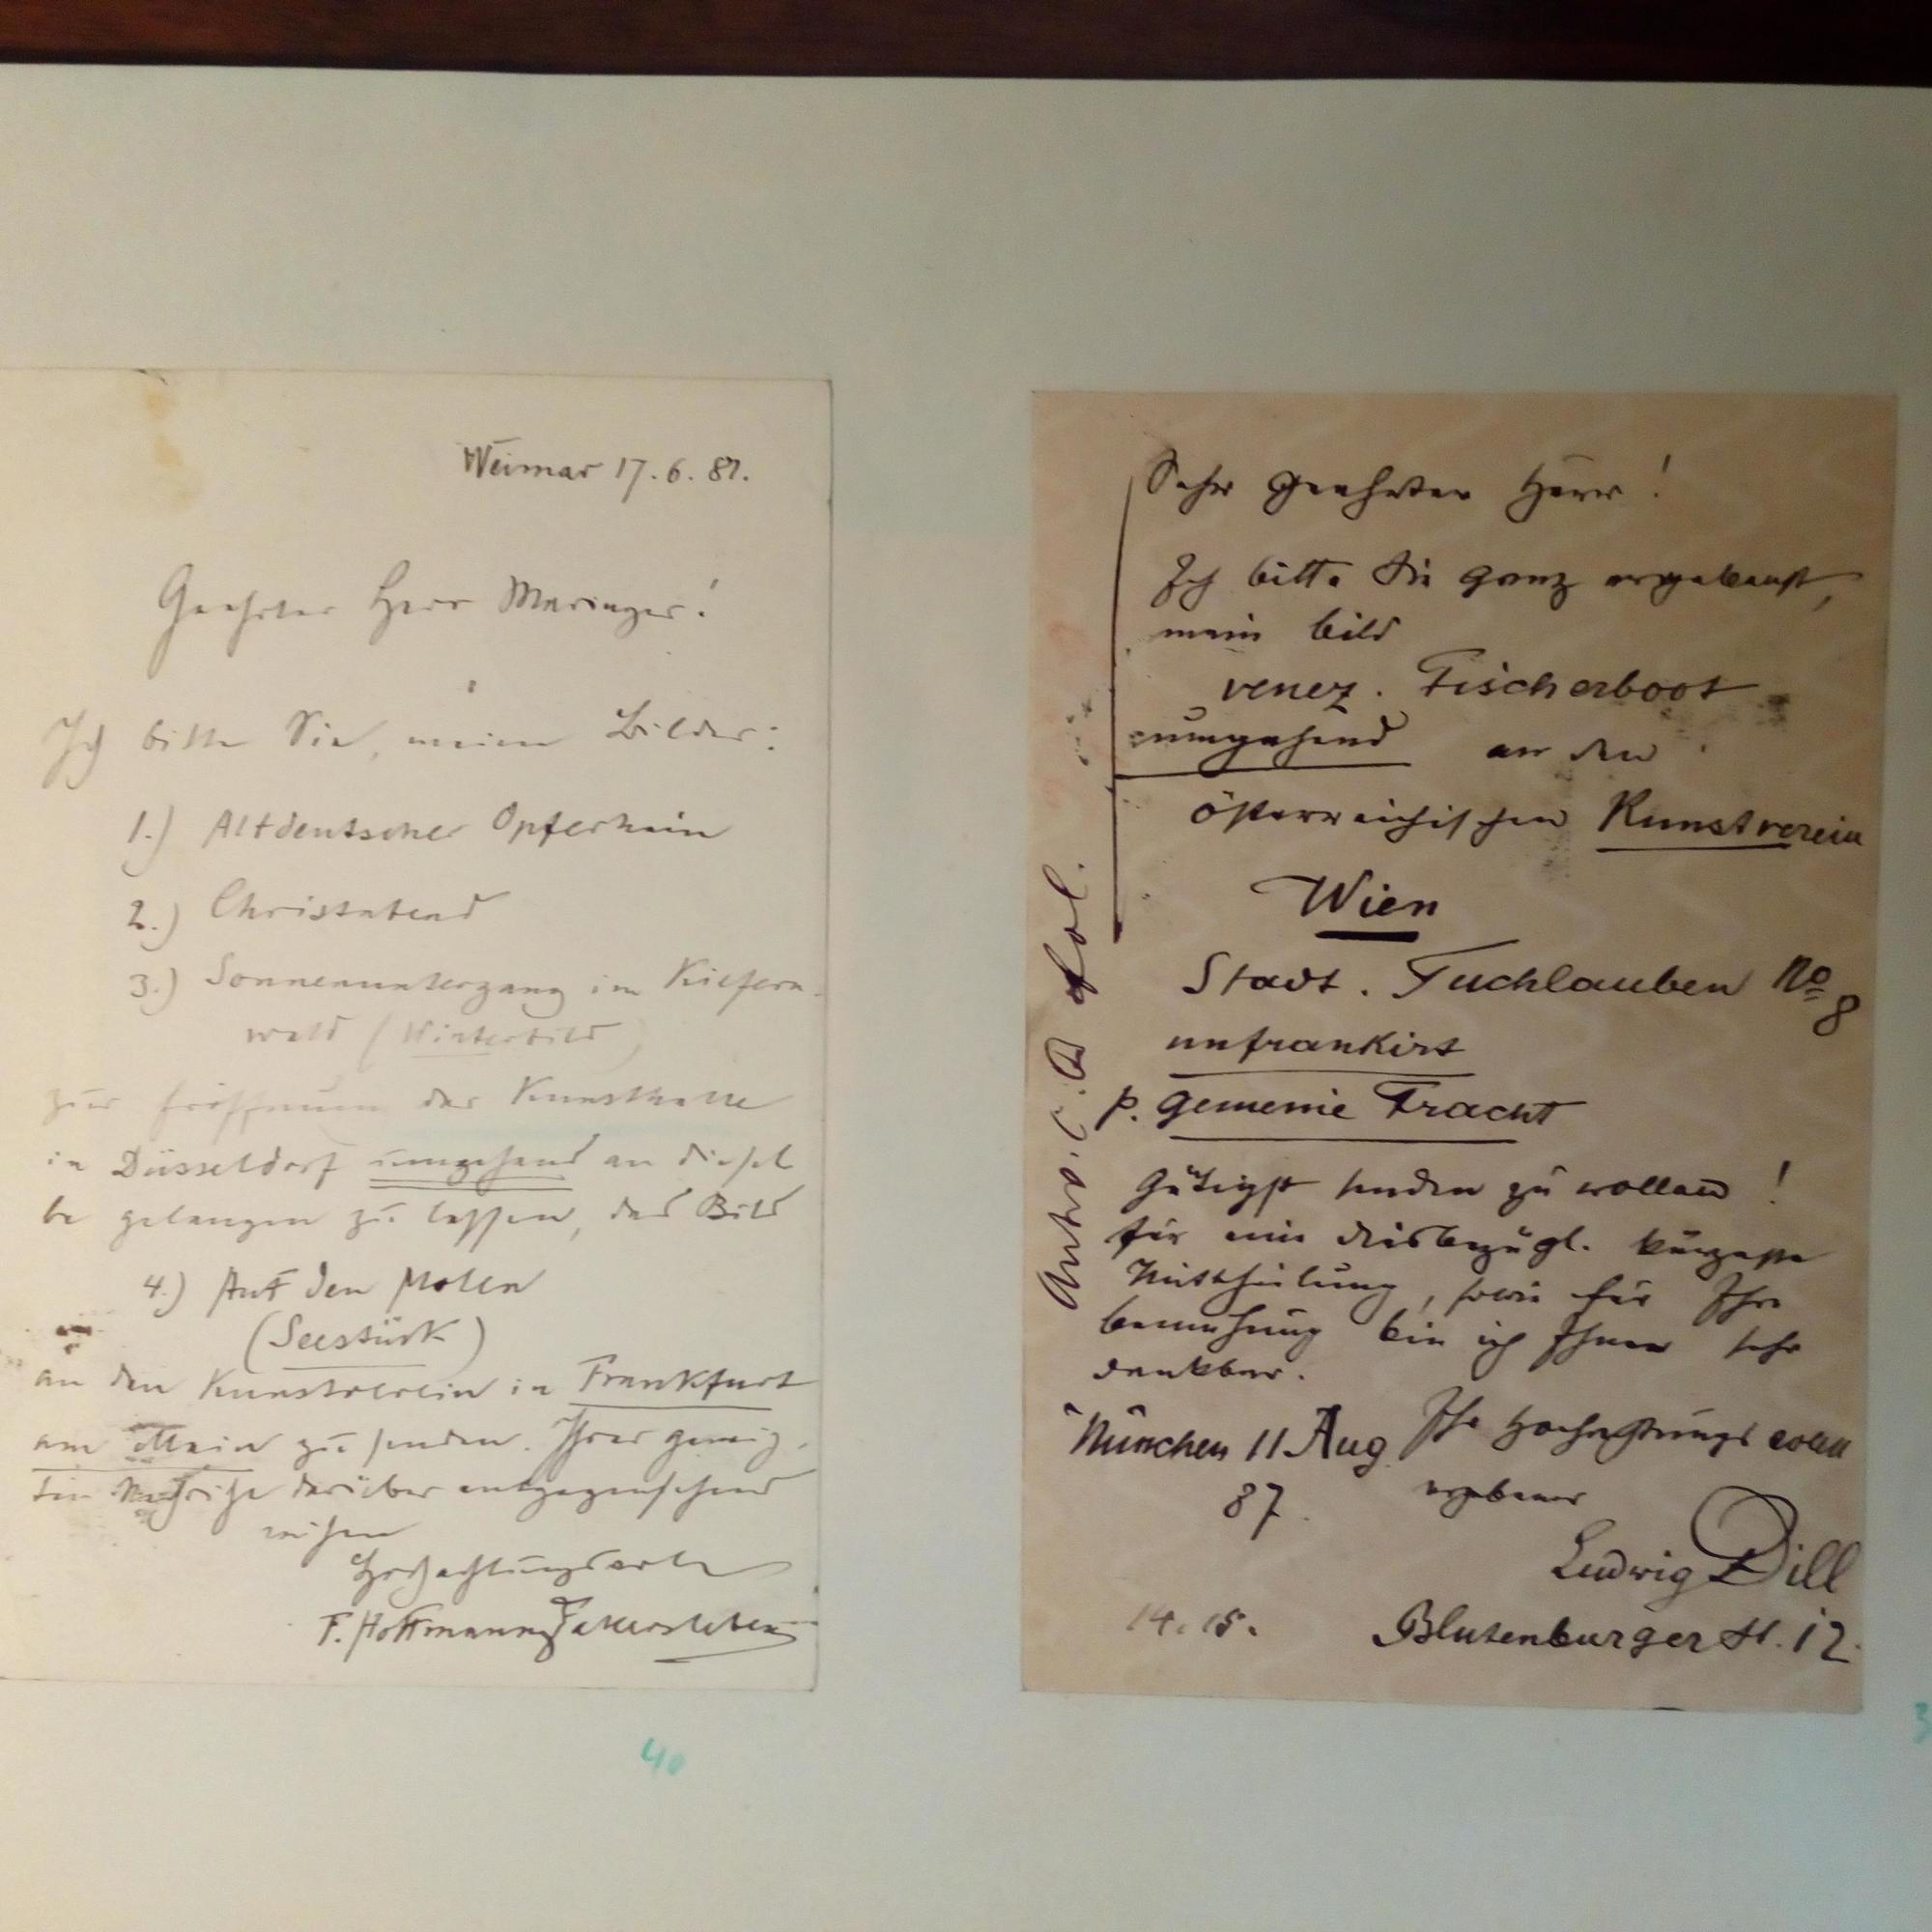 Weimar 17.6.81.
Geehrter Herr Maringer!
Ich bitte Sie, meine Bilder:
1.) Altdeutscher Opferhain
2.) Christabend
3.) Sonnenuntergang im Kiefern-
wald (Winterbild)
zur Eröffnung der Kunsthalle
in Düsseldorf umgehend an diesel
be gelangen zu lassen, das Bild
4.) Auf den Molen
(Seestück)
an den Kunstverein in Frankfurt
am Main zu senden. Ihrer geneig-
ten Nachricht darüber entgegensehend
Hochachtungsvoll
F. Hoffmann Fallersleben
40
Sehr geehrter Herr!
Ich bitte Sie ganz ergebenst,
mein Bild
venez. Fischerboot
umgehend an den
österreichischen Kunstverein
Wien
Stadt. Tuchlauben No 8
unfrankirt
p. gemeine Fracht
gütigst senden zu wollen!
für eine diesbezügl. kürzeste
Mittheilung, sowie für Ihre
Bemühung bin ich Ihnen sehr
dankbar.
München 11 Aug
87
Ihr Hochachtungsvoll
ergebener
Ludwig Dill
Blutenburger St. 12.
14. 15.